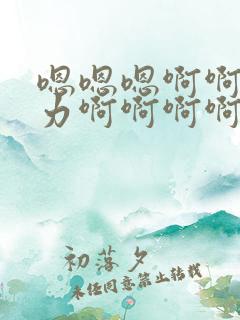 嗯嗯嗯啊啊
力啊啊啊啊
初落夕
未经同意禁止转载